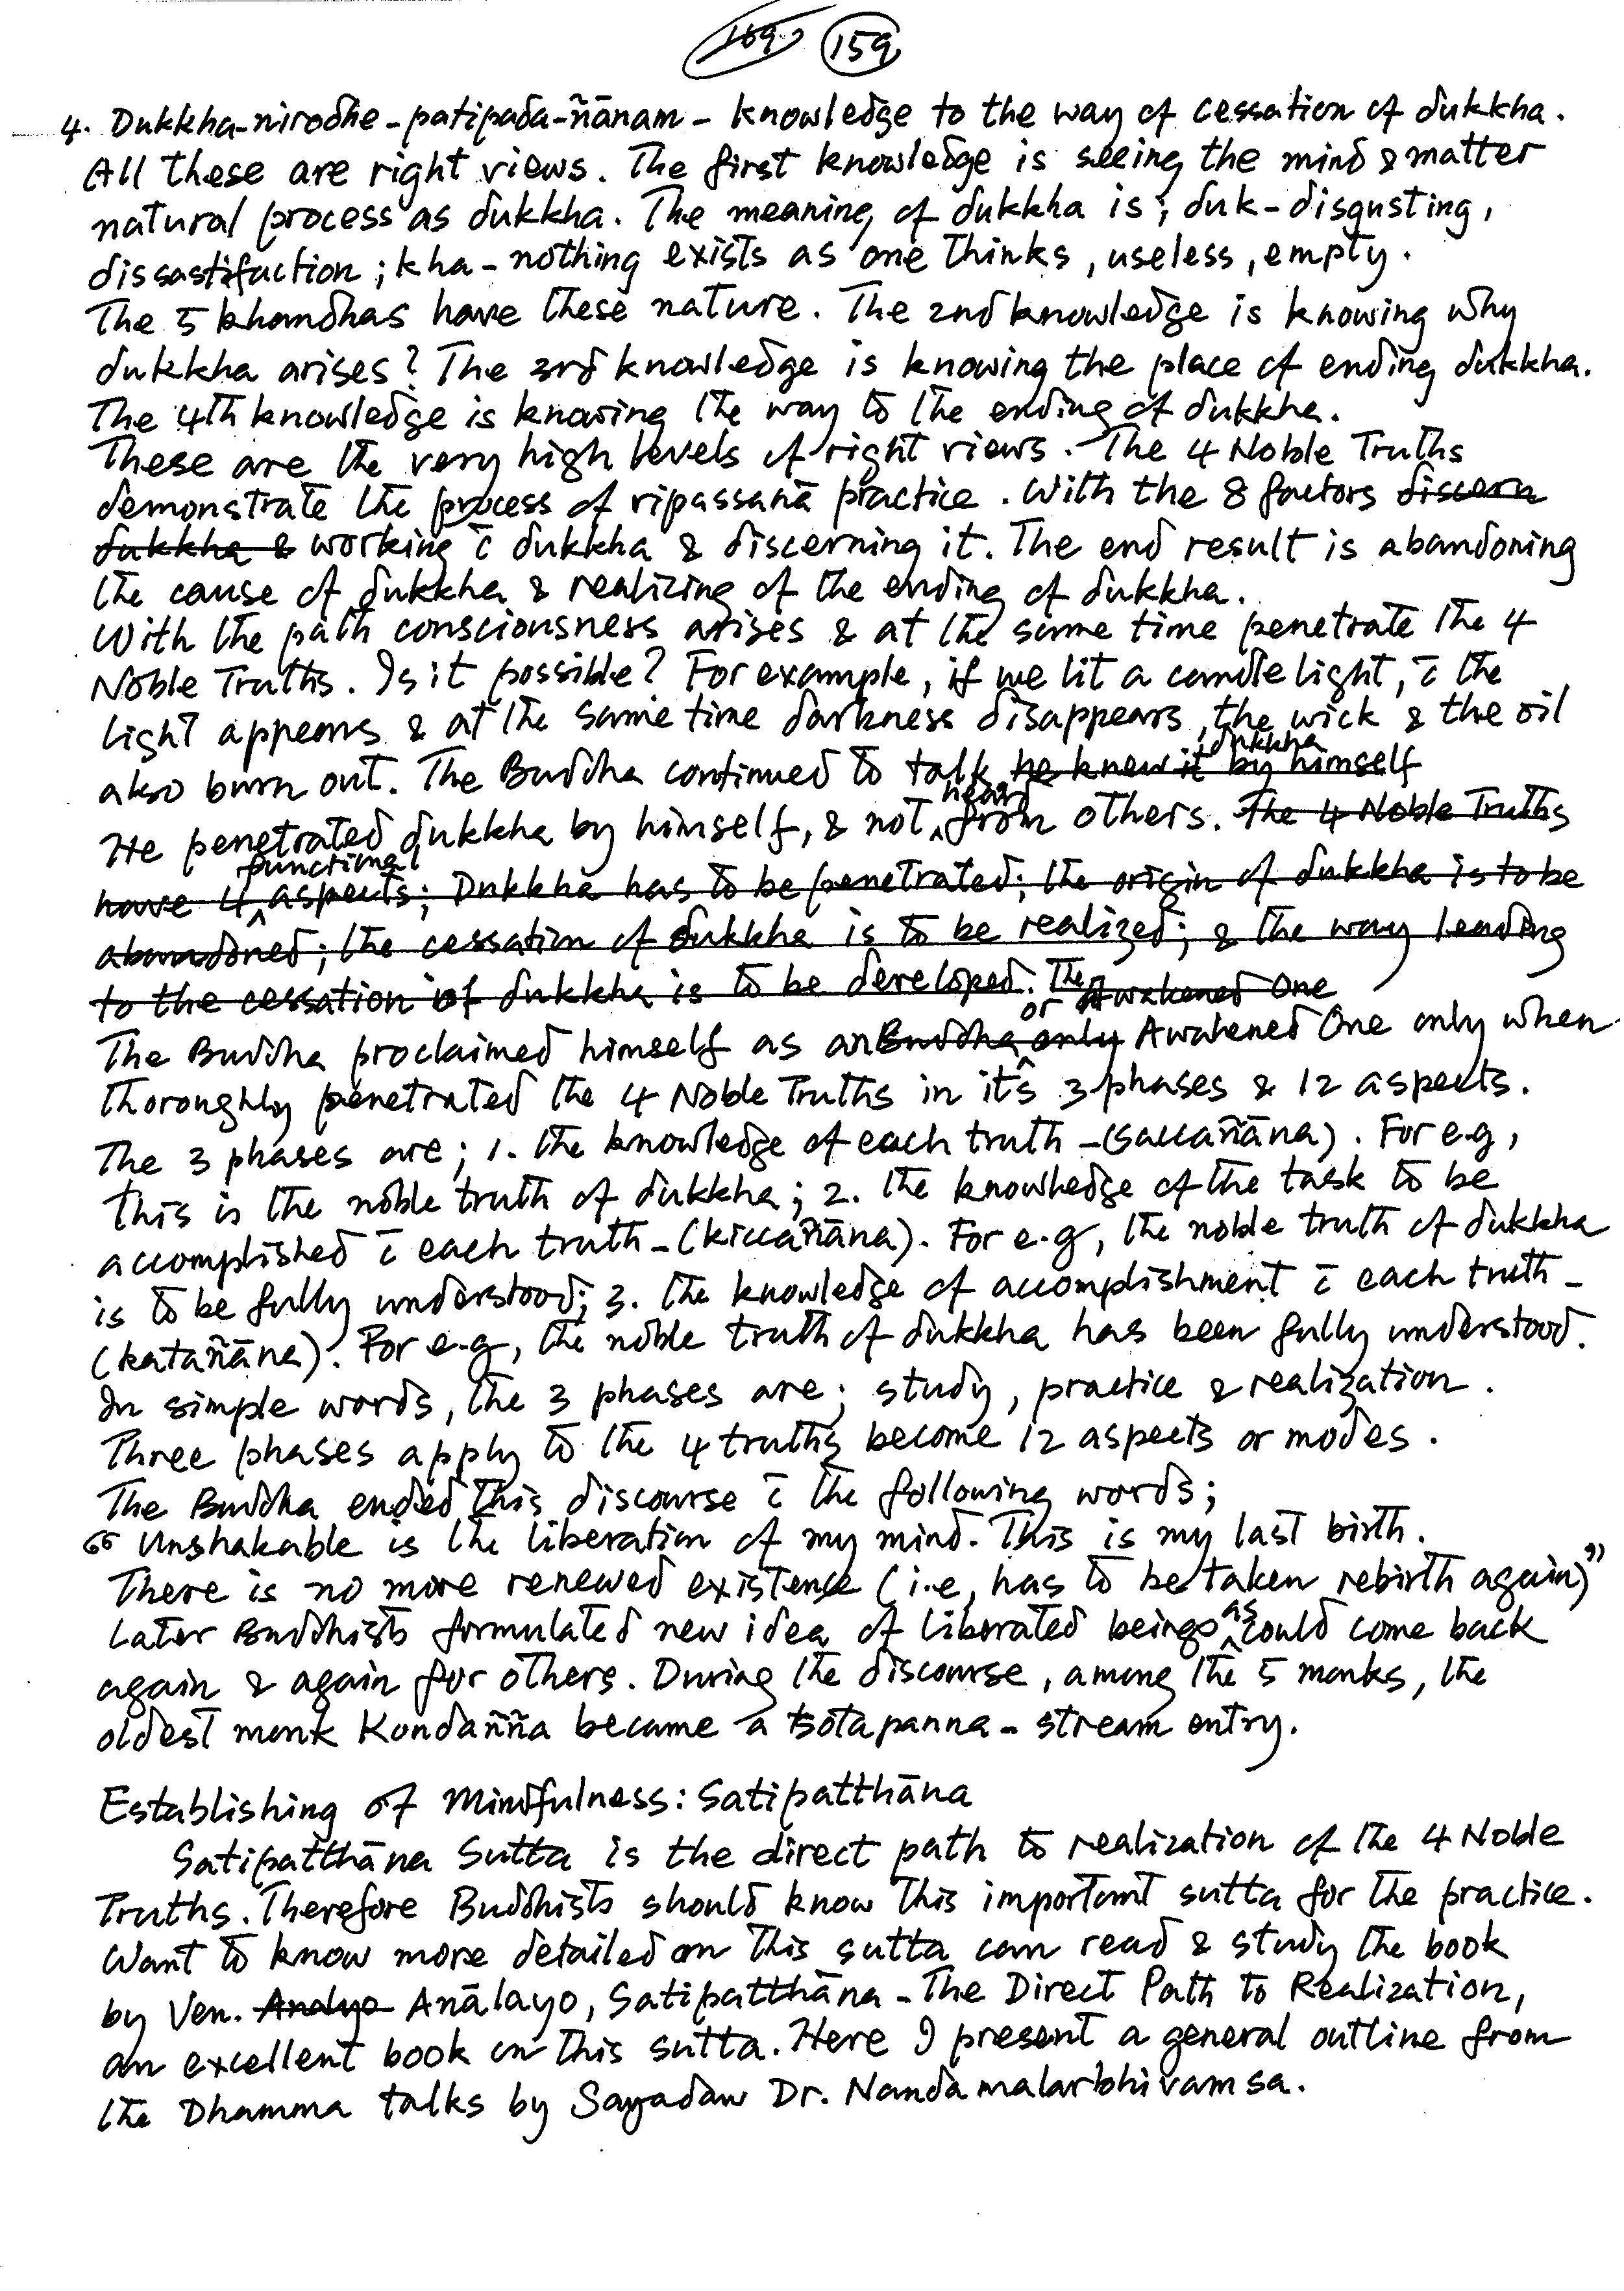 169 159
4. Dukkha-nirodhe-patipada-ñānam - knowledge to the way of cessation of dukkha.
All these are right views. The first knowledge is seeing the mind & matter
natural process as dukkha. The meaning of dukkha is; duk-disgusting,
dissastifaction; kha-nothing exists as one thinks, useless, empty.
The 5 khandhas have these nature. The 2nd knowledge is knowing why
dukkha arises? The 3rd knowledge is knowing the place of ending dukkha.
The 4th knowledge is knowing the way to the ending of dukkha.
These are the very high levels of right views. The 4 Noble Truths
demonstrate the process of vipassanā practice. With the 8 factors discern
dukkha & working c̄ dukkha & discerning it. The end result is abandoning
the cause of dukkha & realizing of the ending of dukkha.
With the path consciousness arises & at the same time penetrate the 4
Noble Truths. Is it possible? For example, if we lit a candle light, c̄ the
light appears & at the same time darkness disappears, the wick & the oil
also burn out. The Buddha continued to talk he knew it dukkha by himself
He penetrated dukkha by himself, & not heard from others. The 4 Noble Truths
have 4 functional aspects; Dukkha has to be penetrated; the origin of dukkha is to be
abandoned; the cessation of dukkha is to be realized; & the way leading
to the cessation of dukkha is to be developed. The Awakened One
The Buddha proclaimed himself as an Buddha or only Awakened One only when
thoroughly penetrated the 4 Noble Truths in its 3 phases & 12 aspects.
The 3 phases are; 1. the knowledge of each truth-(saccañāna). For e.g,
this is the noble truth of dukkha; 2. the knowledge of the task to be
accomplished c̄ each truth-(kiccañāna). For e.g, the noble truth of dukkha
is to be fully understood; 3. the knowledge of accomplishment c̄ each truth-
(katañāna). For e.g, the noble truth of dukkha has been fully understood.
In simple words, the 3 phases are; study, practice & realization.
Three phases apply to the 4 truths become 12 aspects or modes.
The Buddha ended this discourse c̄ the following words;
“Unshakable is the liberation of my mind. This is my last birth.
There is no more renewed existence (i.e, has to be taken rebirth again)”
Later Buddhists formulated new idea of liberated beings as could come back
again & again for others. During the discourse, among the 5 monks, the
oldest monk Kondañña became a sotapanna - stream entry.
Establishing of Mindfulness: Satipatthāna
Satipatthāna Sutta is the direct path to realization of the 4 Noble
Truths. Therefore Buddhists should know this important sutta for the practice.
Want to know more detailed on this sutta can read & study the book
by Ven. Analyo Anālayo, Satipatthāna - The Direct Path to Realization,
an excellent book on this sutta. Here I present a general outline from
the Dhamma talks by Sayadaw Dr. Nandamalarbhivamsa.